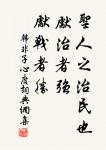 聖人之治民也
獻治者強
獻戰者勝
韓非子心度詞典網集